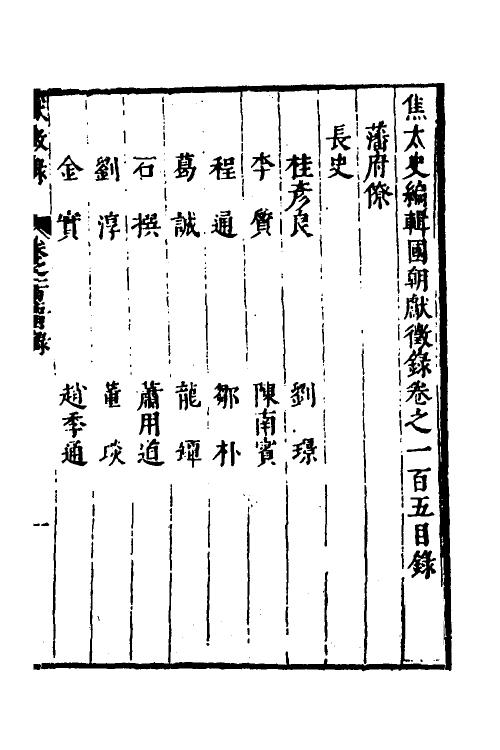 焦太史編輯國朝獻徵錄卷之一百五目錄
藩府僚
長史
桂彥良 劉璟
李質 陳南賓
程通 鄒朴
葛誠 龍鐔
石撰 蕭用道
劉淳 董琰
金實 趙季通
徵錄 卷之一百五目錄 一